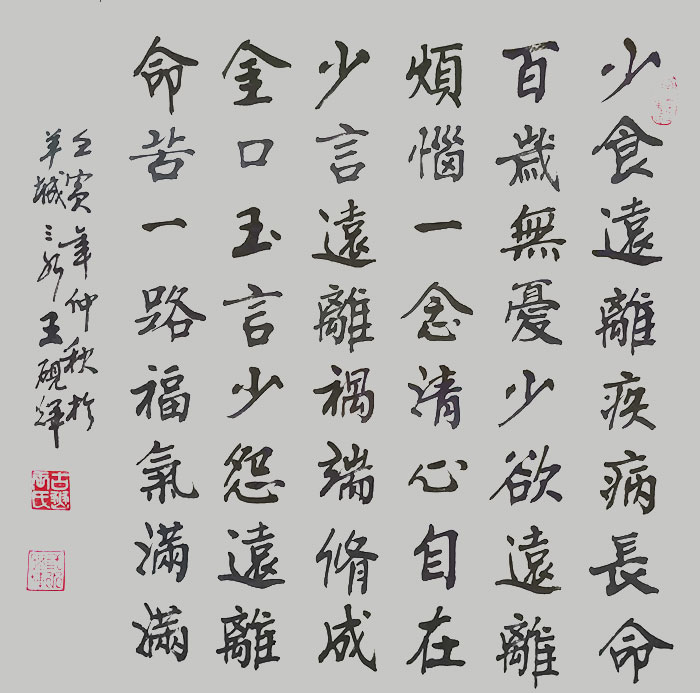 少食遠離疾病長命
百歲無憂少欲遠離
煩惱一念清心自在
少言遠離禍端脩成
金口玉言少怨遠離
命苦一路福氣滿滿
壬寅年仲秋於
羊城王硯輝